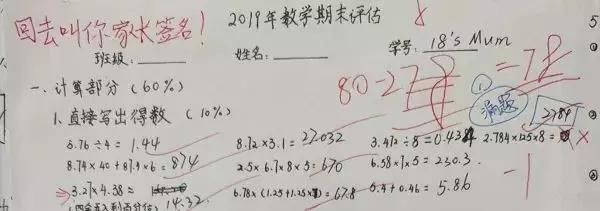 回去叫你家长签名！
2019年数学期末评估
班级：______ 姓名：______ 学号：18's Mum
80-2 =78
一、计算部分（60%）
1、直接写出得数（10%）
5.76÷4= 1.44 8.72×3.1= 27.032 3.472÷8=0.434 2.784×125×8=
8.74×40+87.4×6= 874 2.5×6.7×8×5=670 6.58×7×5=230.3
3.27×4.38= 14.32 6.78×(1.25+1.25× 67.8 5.4+0.46= 5.86
-1
2784